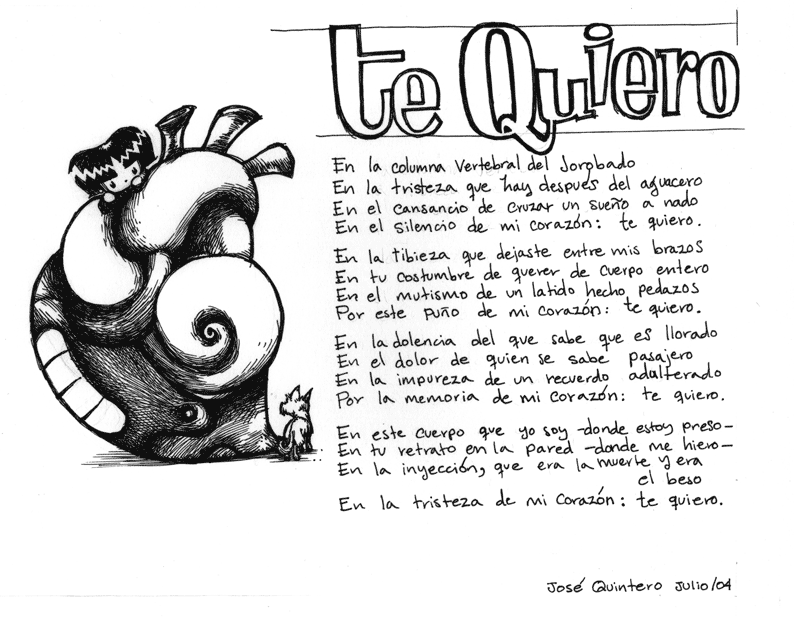 te Quiero
En la columna vertebral del Jorobado
En la tristeza que hay después del aguacero
En el cansancio de cruzar un sueño a nado
En el silencio de mi corazón: te quiero.
En la tibieza que dejaste entre mis brazos
En tu costumbre de querer de cuerpo entero
En el mutismo de un latido hecho pedazos
Por este puño de mi corazón: te quiero.
En la dolencia del que sabe que es llorado
En el dolor de quien se sabe pasajero
En la impureza de un recuerdo adulterado
Por la memoria de mi corazón: te quiero.
En este cuerpo que yo soy -donde estoy preso-
En tu retrato en la pared -donde me hiero-
En la inyección, que era la muerte y era
el beso
En la tristeza de mi corazón: te quiero.
José Quintero Julio/04